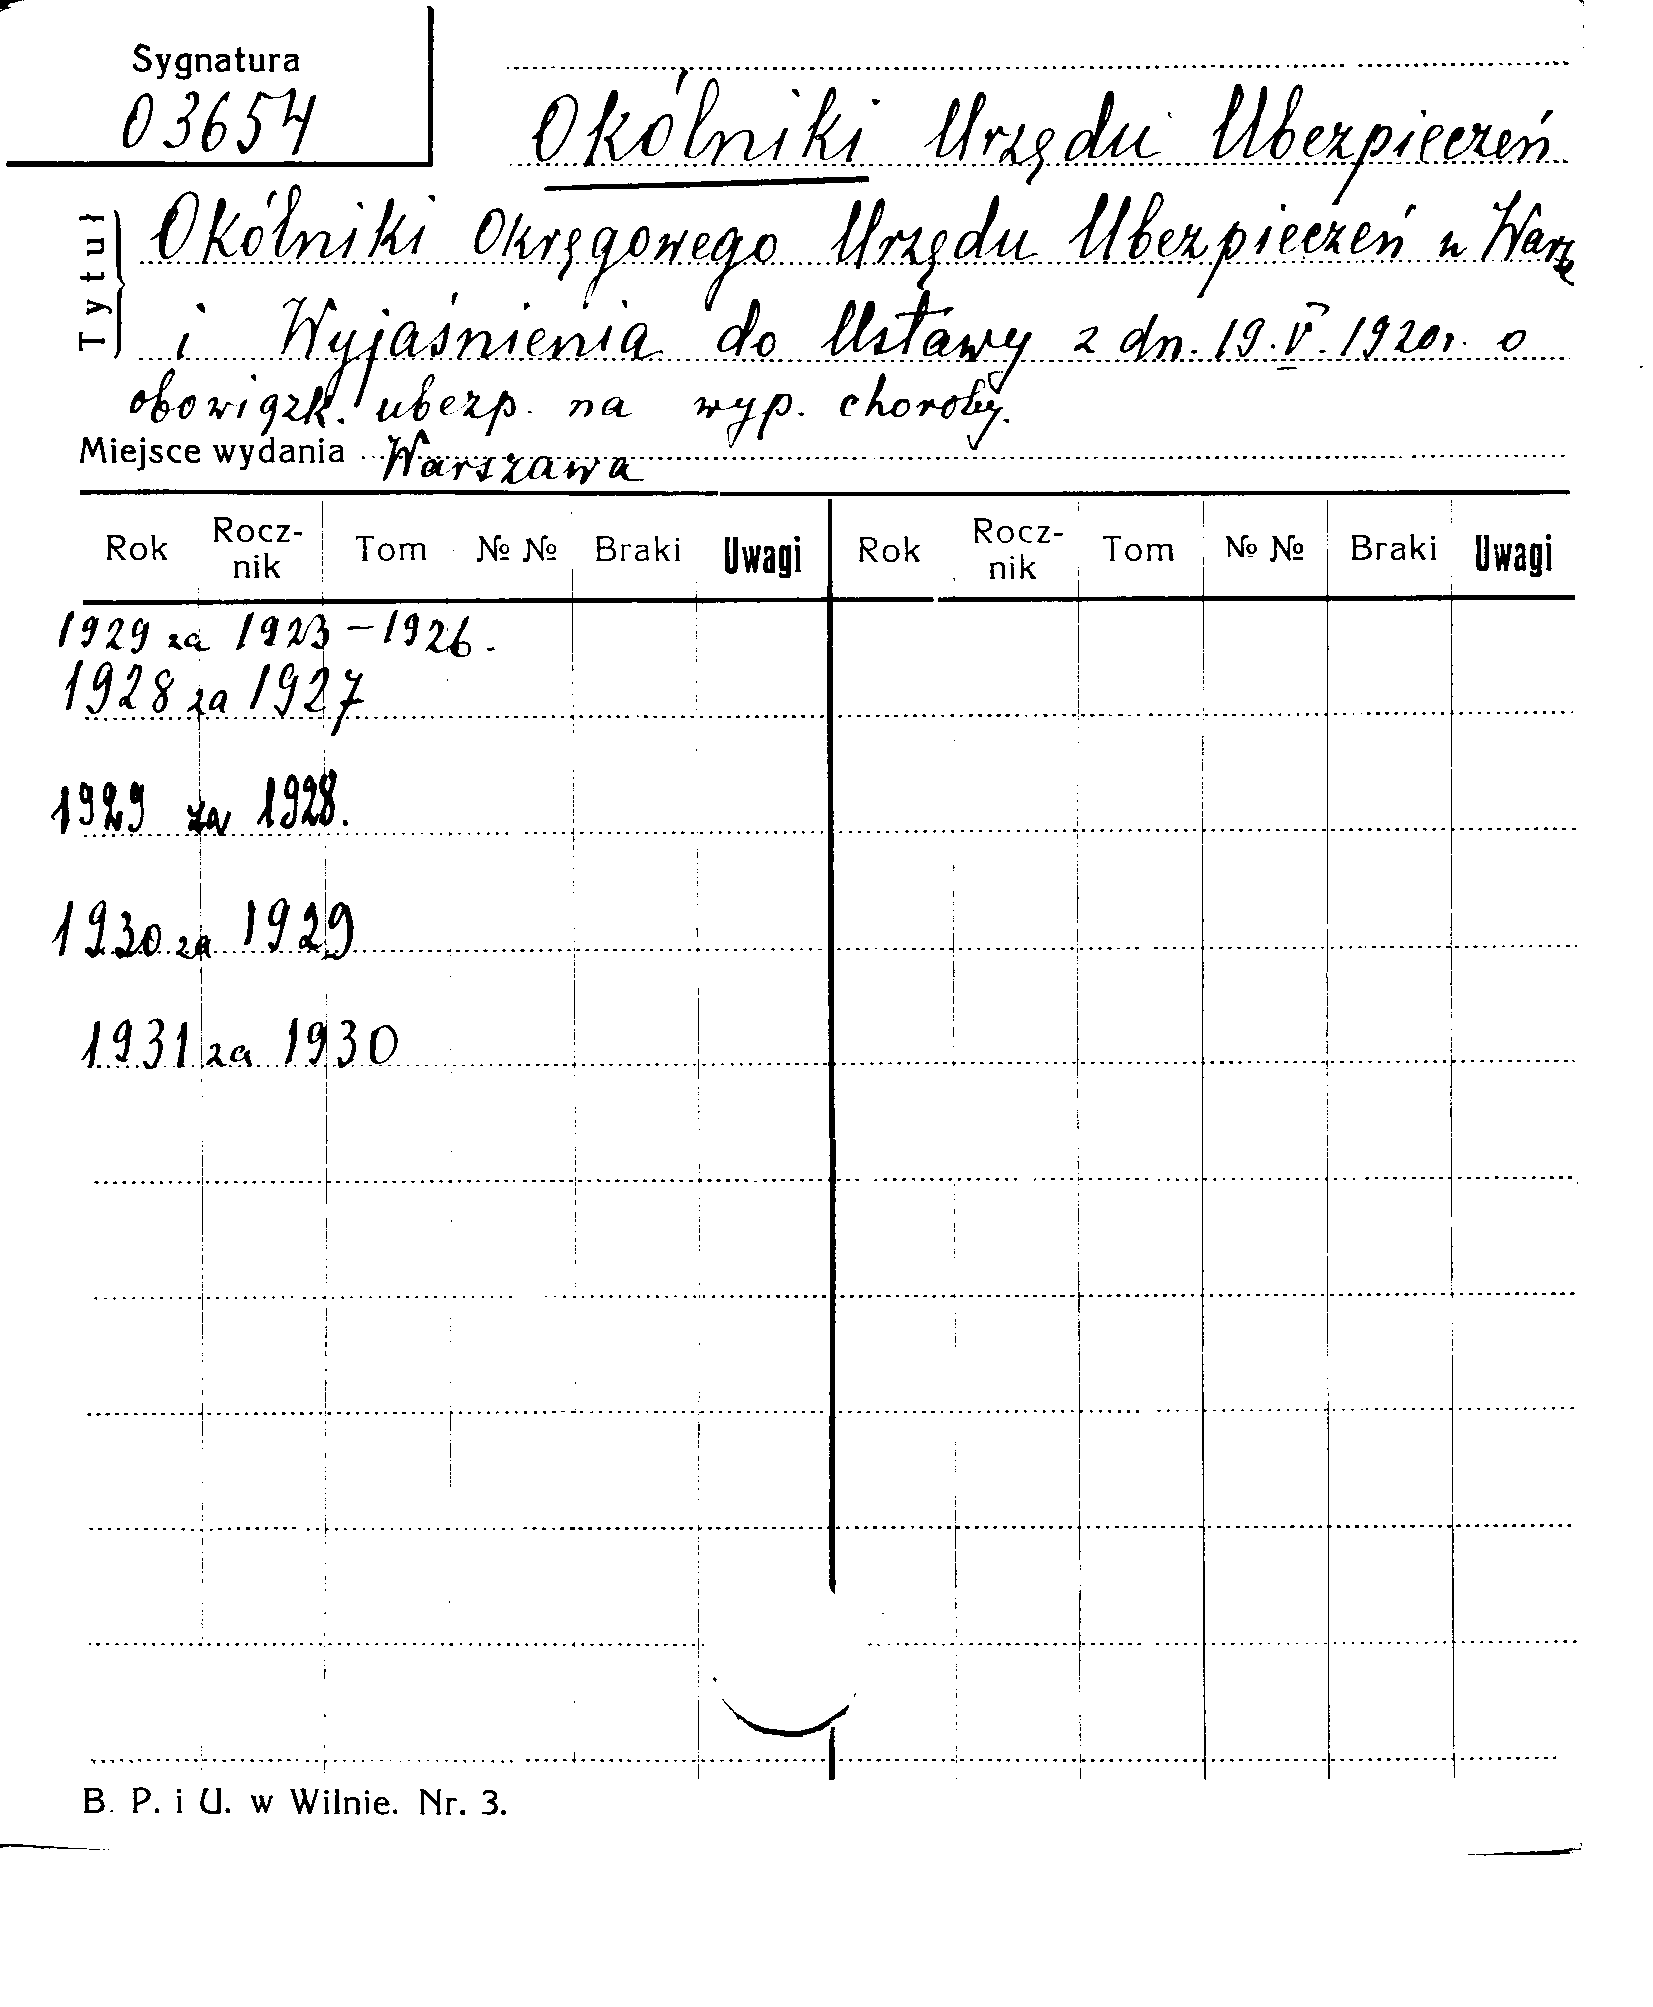 Sygnatura
03654
Okólniki Urzędu Ubezpieczeń
Tytuł
Okólniki Okręgowego Urzędu Ubezpieczeń w Warsz
i Wyjaśnienia do Ustawy z dn. 19.V.1920r. o
obowiązk. ubezp. na wyp. choroby.
Miejsce wydania Warszawa
Rok Rocz-nik Tom № № Braki Uwagi Rok Rocz-nik Tom № № Braki Uwagi
1929 za 1923-1926.
1928 za 1927
1929 za 1928.
1930 za 1929
1931 za 1930
B. P. i U. w Wilnie. Nr. 3.